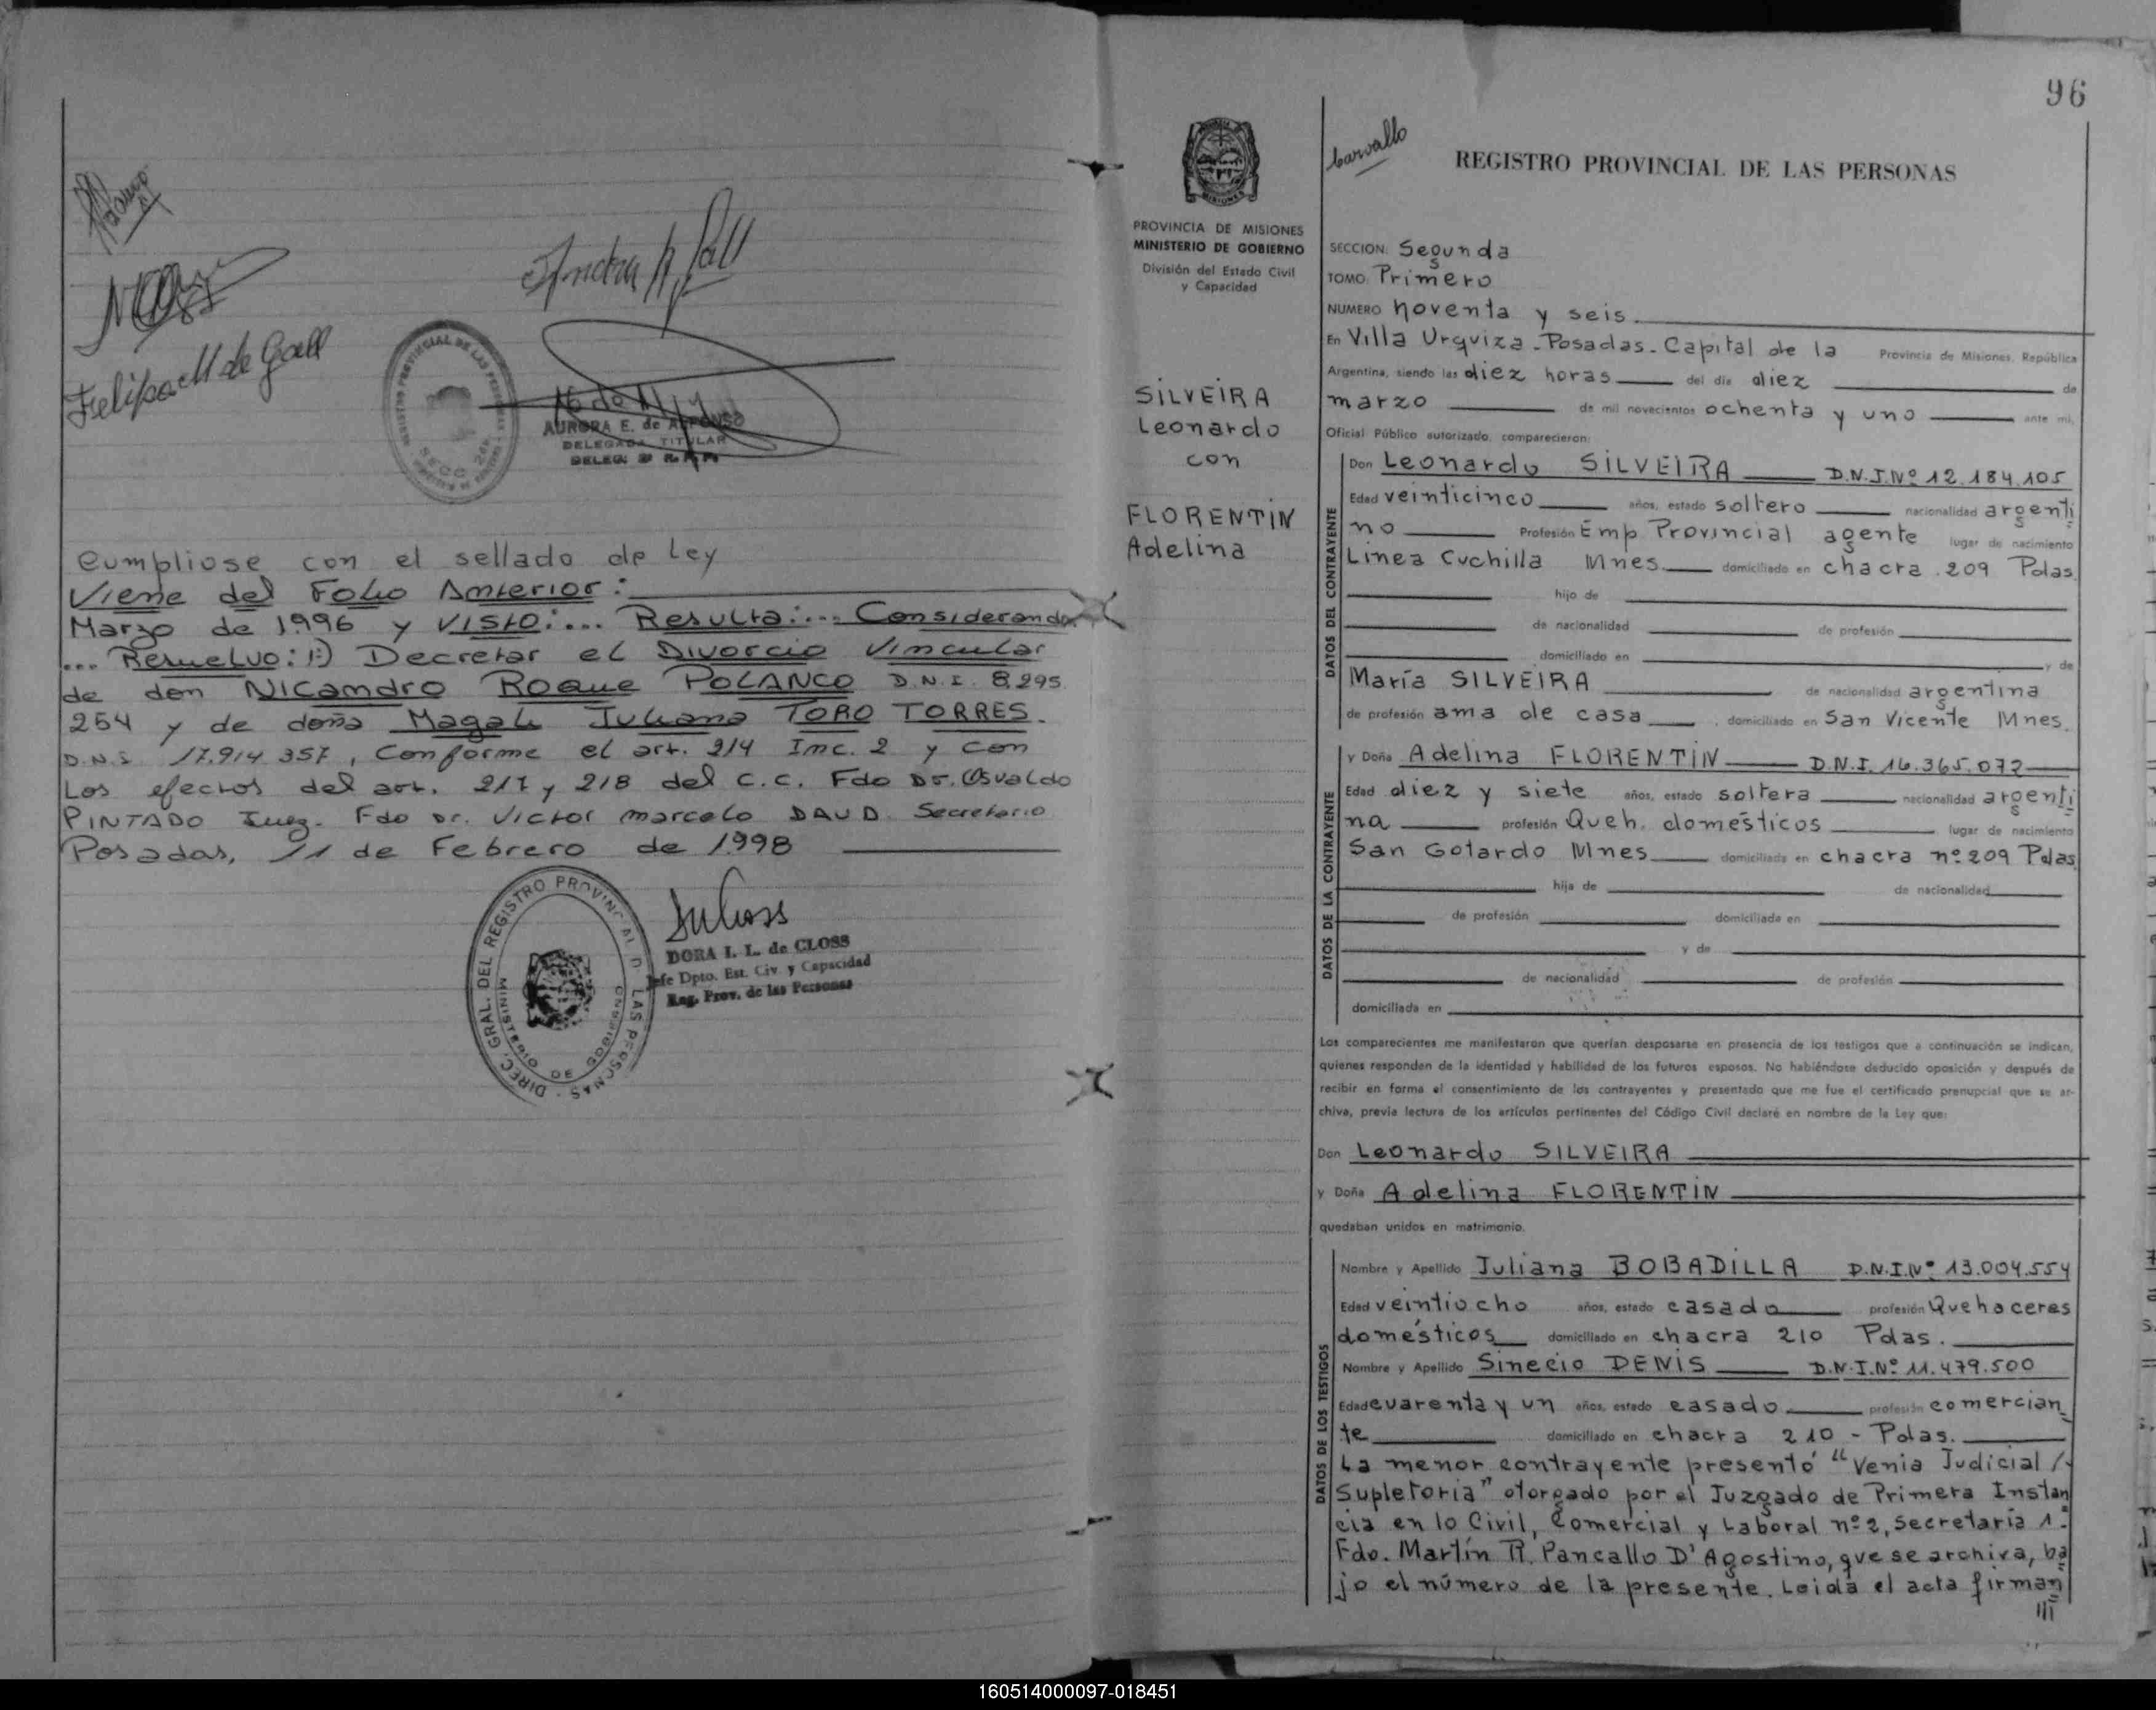 Felipa M de Gall
AURORA E. de ALFONSO
DELEGADA TITULAR
Cumpliose con el sellado de Ley
Viene del Folio Anterior:
Marzo de 1996 y VISTO:... Resulta:... Considerando
... Resuelvo: 1º) Decretar el Divorcio Vincular
de don NICANDRO ROQUE POLANCO D.N.I. 8.295.
254 y de doña Magali Juliana TORO TORRES.
D.N.I. 17.914.357, Conforme el art. 214 Inc. 2 y con
Los efectos del art. 217 y 218 del C.C. Fdo Dr. Osvaldo
PINTADO Juez. Fdo Dr. Victor Marcelo DAUD Secretario
Posadas, 11 de Febrero de 1998
DIREC. GRAL. DEL REGISTRO PROVINCIAL D LAS PERSONAS
MINISTERIO DE GOBIERNO
DORA I. L. de CLOSS
Jefe Dpto. Est. Civ. y Capacidad
Reg. Prov. de las Personas
96
MISIONES
PROVINCIA DE MISIONES
MINISTERIO DE GOBIERNO
División del Estado Civil
y Capacidad
SILVEIRA
Leonardo
con
FLORENTIN
Adelina
Carvallo
REGISTRO PROVINCIAL DE LAS PERSONAS
SECCION: Segunda
TOMO: Primero
NUMERO noventa y seis
En Villa Urquiza - Posadas - Capital de la Provincia de Misiones, República
Argentina, siendo las diez horas del día diez de
marzo de mil novecientos ochenta y uno ante mí,
Oficial Público autorizado, comparecieron:
DATOS DEL CONTRAYENTE
Don Leonardo SILVEIRA D.N.I.Nº 12.184.105
Edad veinticinco años, estado soltero nacionalidad argenti
no Profesión Emp Provincial agente lugar de nacimiento
Linea Cuchilla Mnes. domiciliado en chacra 209 Pdas.
hijo de
de nacionalidad de profesión
domiciliado en y de
María SILVEIRA de nacionalidad argentina
de profesión ama de casa, domiciliado en San Vicente Mnes.
DATOS DE LA CONTRAYENTE
y Doña Adelina FLORENTIN D.N.I. 16.365.072
Edad diez y siete años, estado soltera nacionalidad argenti
na profesión Queh. domésticos lugar de nacimiento
San Gotardo Mnes. domiciliada en chacra nº 209 Pdas
hija de de nacionalidad
de profesión domiciliada en
y de
de nacionalidad de profesión
domiciliada en
Los comparecientes me manifestaron que querían desposarse en presencia de los testigos que a continuación se indican,
quienes responden de la identidad y habilidad de los futuros esposos. No habiéndose deducido oposición y después de
recibir en forma el consentimiento de los contrayentes y presentado que me fue el certificado prenupcial que se ar-
chiva, previa lectura de los artículos pertinentes del Código Civil declaré en nombre de la Ley que:
Don Leonardo SILVEIRA
y Doña Adelina FLORENTIN
quedaban unidos en matrimonio.
DATOS DE LOS TESTIGOS
Nombre y Apellido Juliana BOBADILLA D.N.I.Nº 13.004.554
Edad veintiocho años, estado casada profesión Quehaceres
domésticos domiciliado en chacra 210 Pdas.
Nombre y Apellido Sinecio DENIS D.N.I.Nº 11.479.500
Edad cuarenta y un años, estado casado profesión comercian
te domiciliado en chacra 210 - Pdas.
La menor contrayente presentó "Venia Judicial /
Supletoria" otorgado por el Juzgado de Primera Instan
cia en lo Civil, Comercial y Laboral nº 2, Secretaría 1.
Fdo. Martín R. Pancallo D'Agostino, que se archiva, ba
jo el número de la presente. Leída el acta firman
///
160514000097-018451